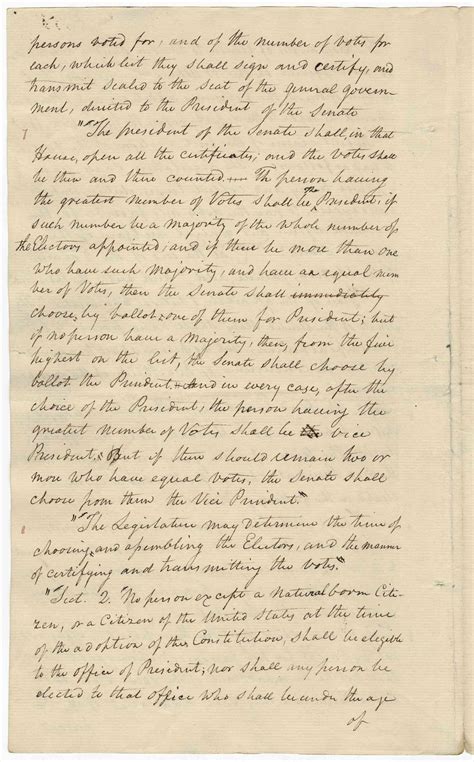 persons voted for, and of the number of votes for
each, which list they shall sign and certify, and
transmit sealed to the seat of the general govern-
ment, directed to the President of the Senate
"The president of the Senate shall, in that
House, open all the certificates; and the votes shall
be then and there counted — Th person having
the greatest number of Votes shall be the President; if
such number be a majority of the whole number of
the Electors appointed; and if there be more than one
who have such Majority, and have an equal num
ber of Votes, then the Senate shall immediately
choose, by ballot, one of them for President; but
if no person have a Majority, then, from the five
highest on the list, the Senate shall choose by
ballot the President, And in every case, after the
choice of the President, the person having the
greatest number of Votes shall be vice
President; But if there should remain two or
more who have equal votes, the Senate shall
choose from them the Vice President."
"The Legislature may Determine the time of
choosing, and assembling the Electors, and the manner
of certifying and transmitting the votes."
"Sect. 2. No person except a Natural born Citi-
zen, or a Citizen of the United States at the time
of the adoption of this Constitution, shall be elegible
to the office of President; nor shall any person be
elected to that office who shall be under the age
of